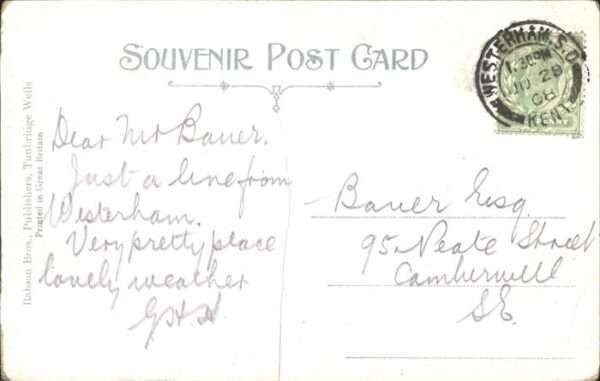 SOUVENIR POST CARD
WESTERHAM. S.O.
1.30PM
28
08
KENT
Rabson Bros., Publishers, Tunbridge Wells
Printed in Great Britain
Dear Mr Bauer.
Just a line from
Westerham.
Very pretty place
lovely weather
Bauer Esq.
95 Neate Street
Camberwell
S.E.